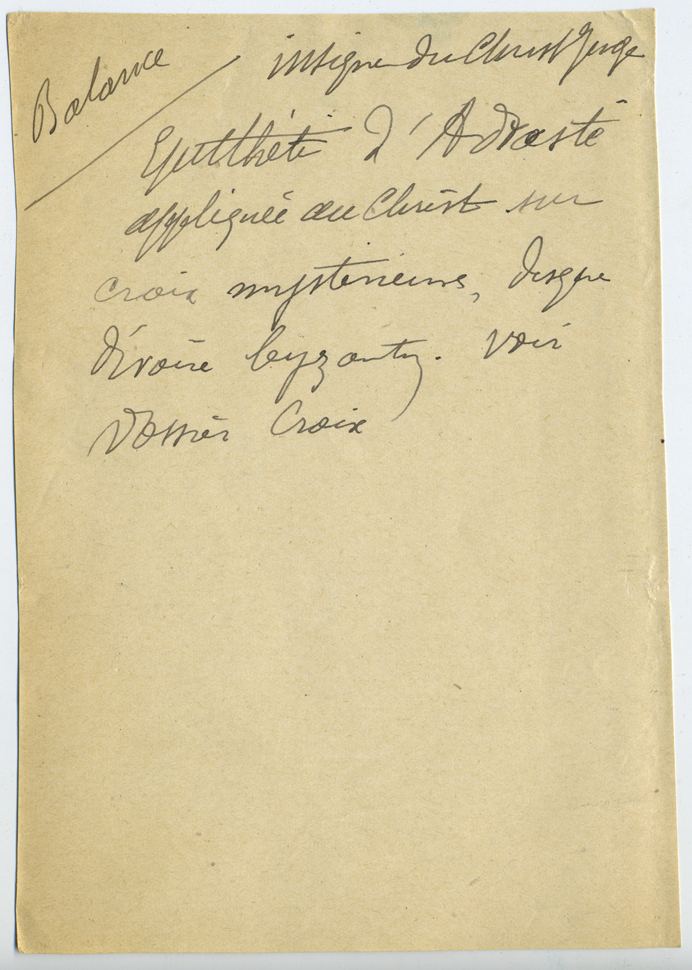 Balance
insigne du Christ Juge
Epithète d'Adraste
appliquée au Christ sur
croix mysterieuse, disque
d'ivoire byzantin. Voir
Dossier Croix